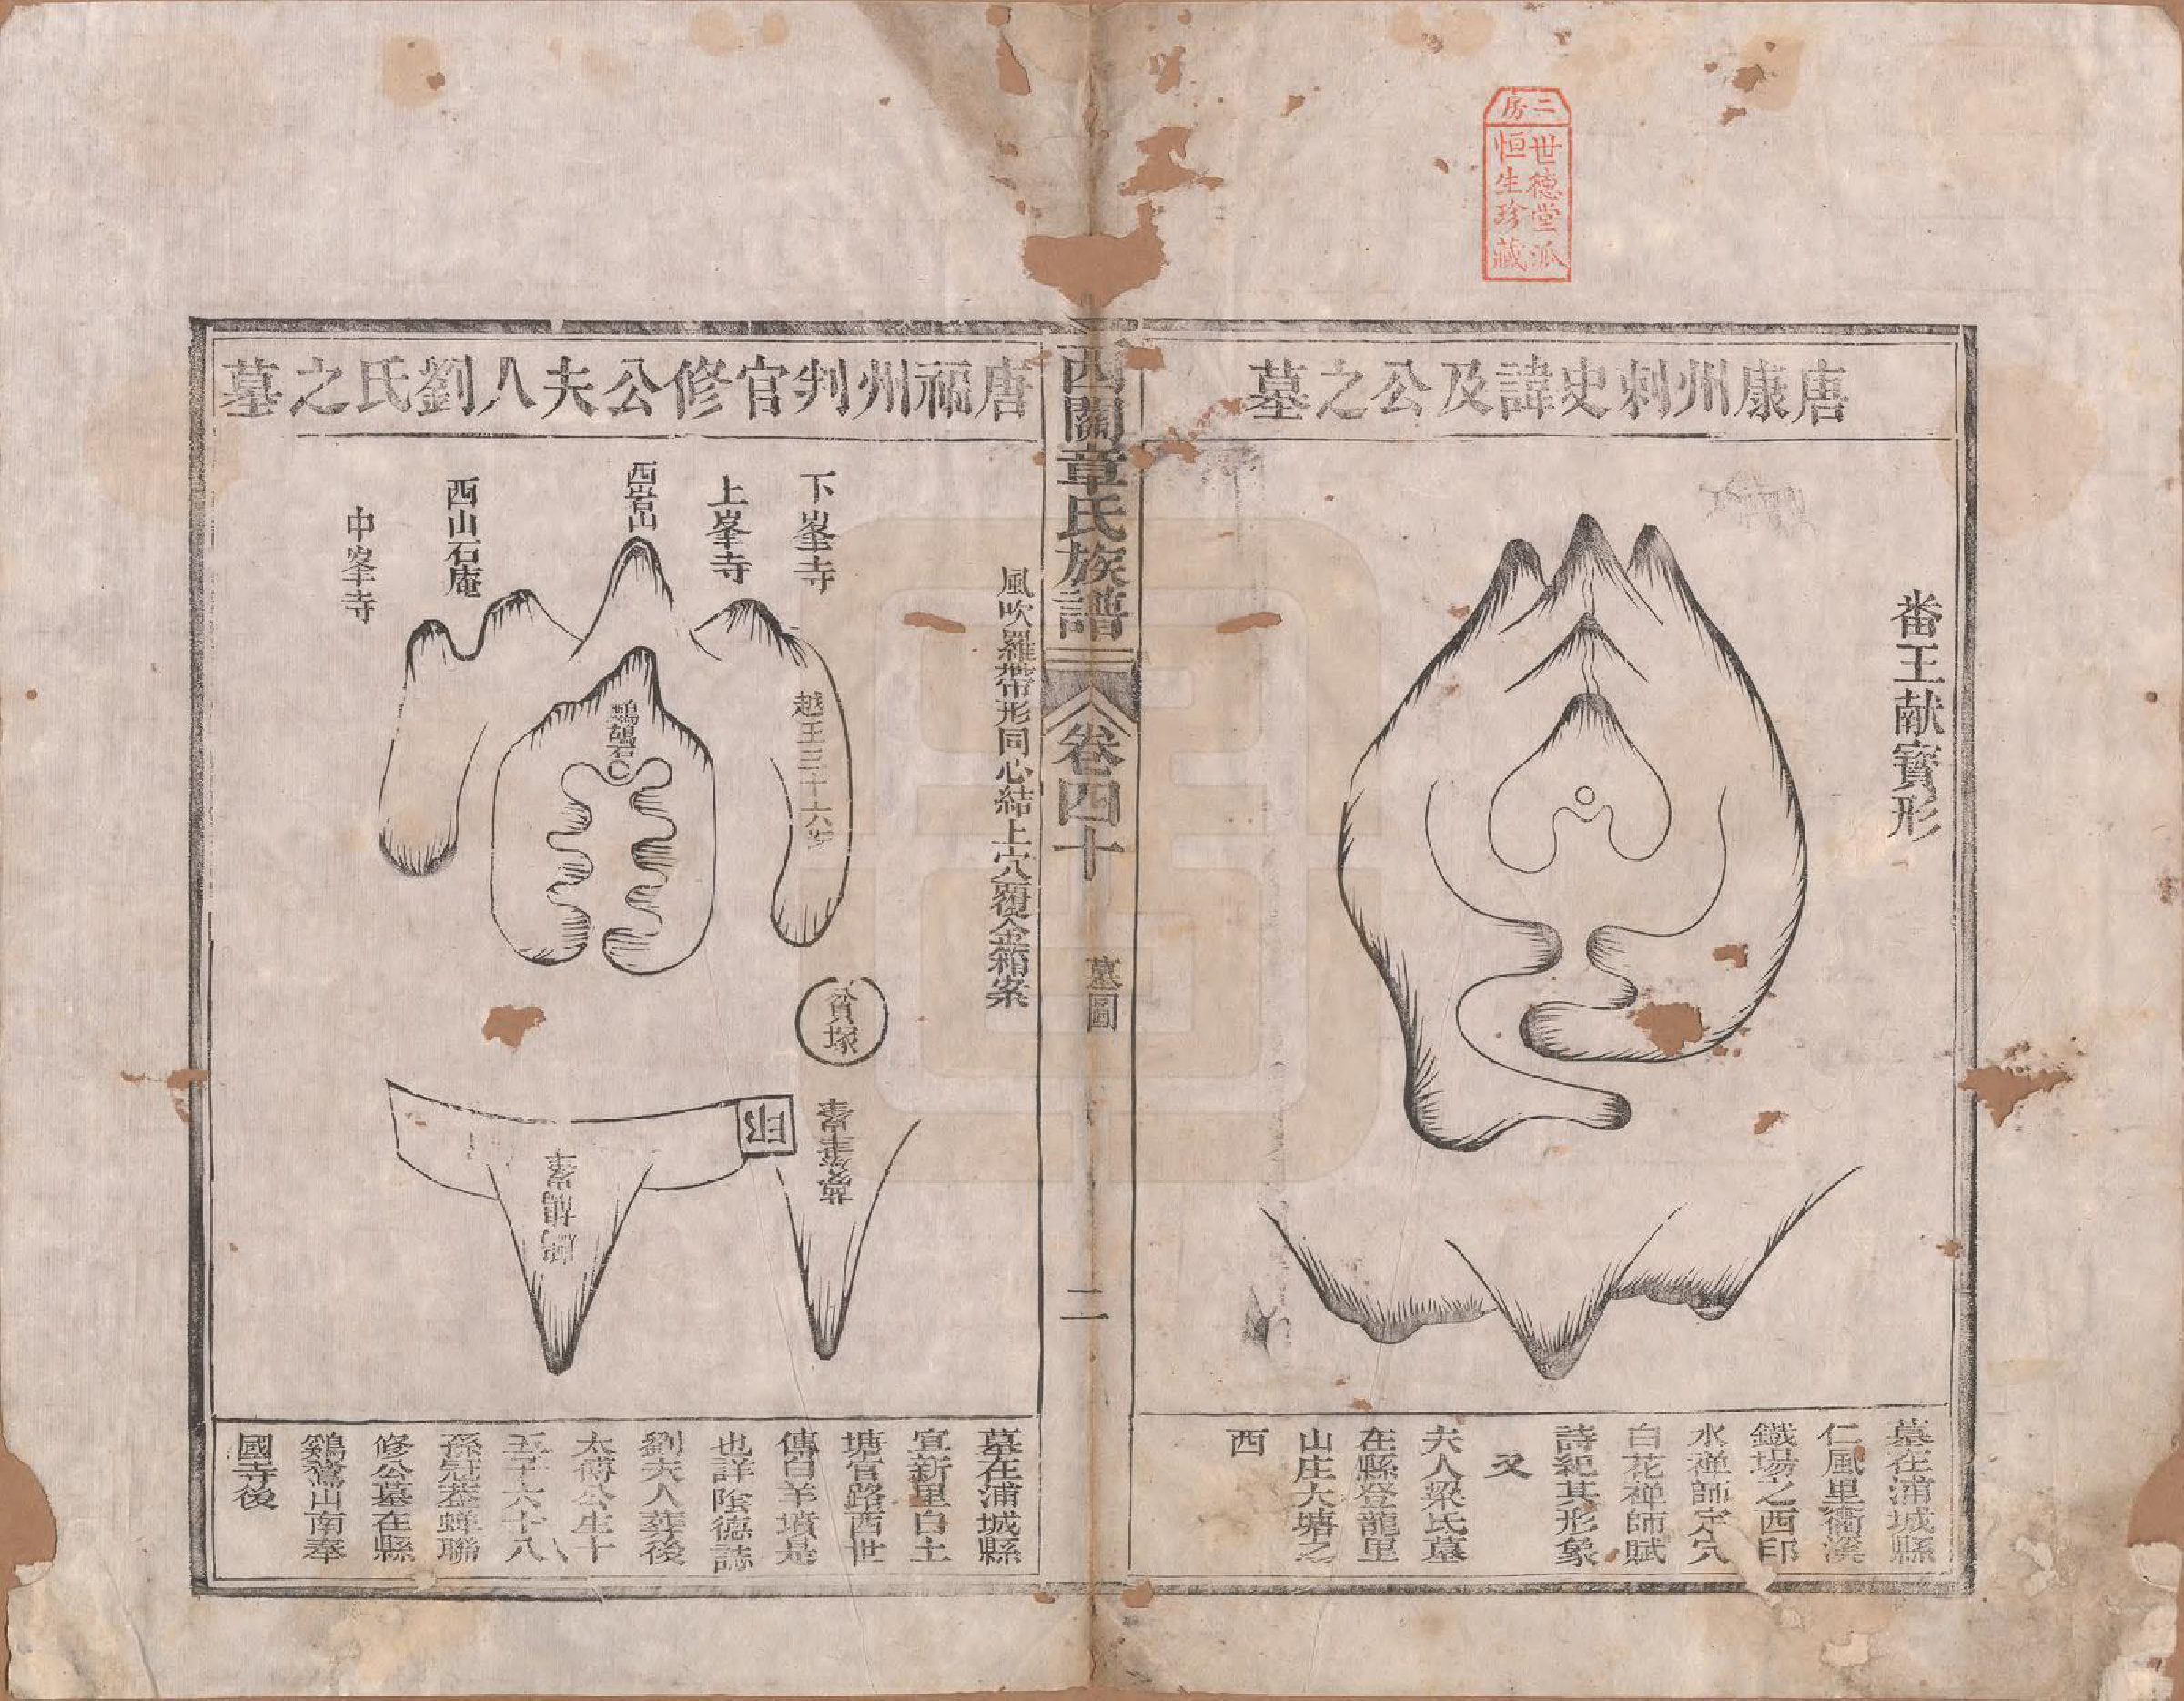 二房
世德堂派
恒生珍藏
唐康州刺史諱及公之墓
畨王献寳形
墓在浦城縣
仁風里衢溪
鐵場之西印
水禅師定穴
白花禅師賦
詩紀其形象
又
夫人梁氏墓
在縣登龍里
山庄大塘之
西
西關章氏族譜
卷四十
墓圖
二
唐福州判官修公夫人劉氏之墓
風吹羅帶形同心結上穴覆金箱案
下峯寺
上峯寺
西岩山
西山石庵
中峯寺
越王三十六步
鷓鴣岩
貧塚
印
墓在浦城縣
宣新里白土
塘官路西世
傳白羊墳是
也詳陰德誌
劉夫人葬後
太傅公生十
五子六十八
孫冠葢蟬聯
修公墓在縣
鷄鵞山南奉
國寺後